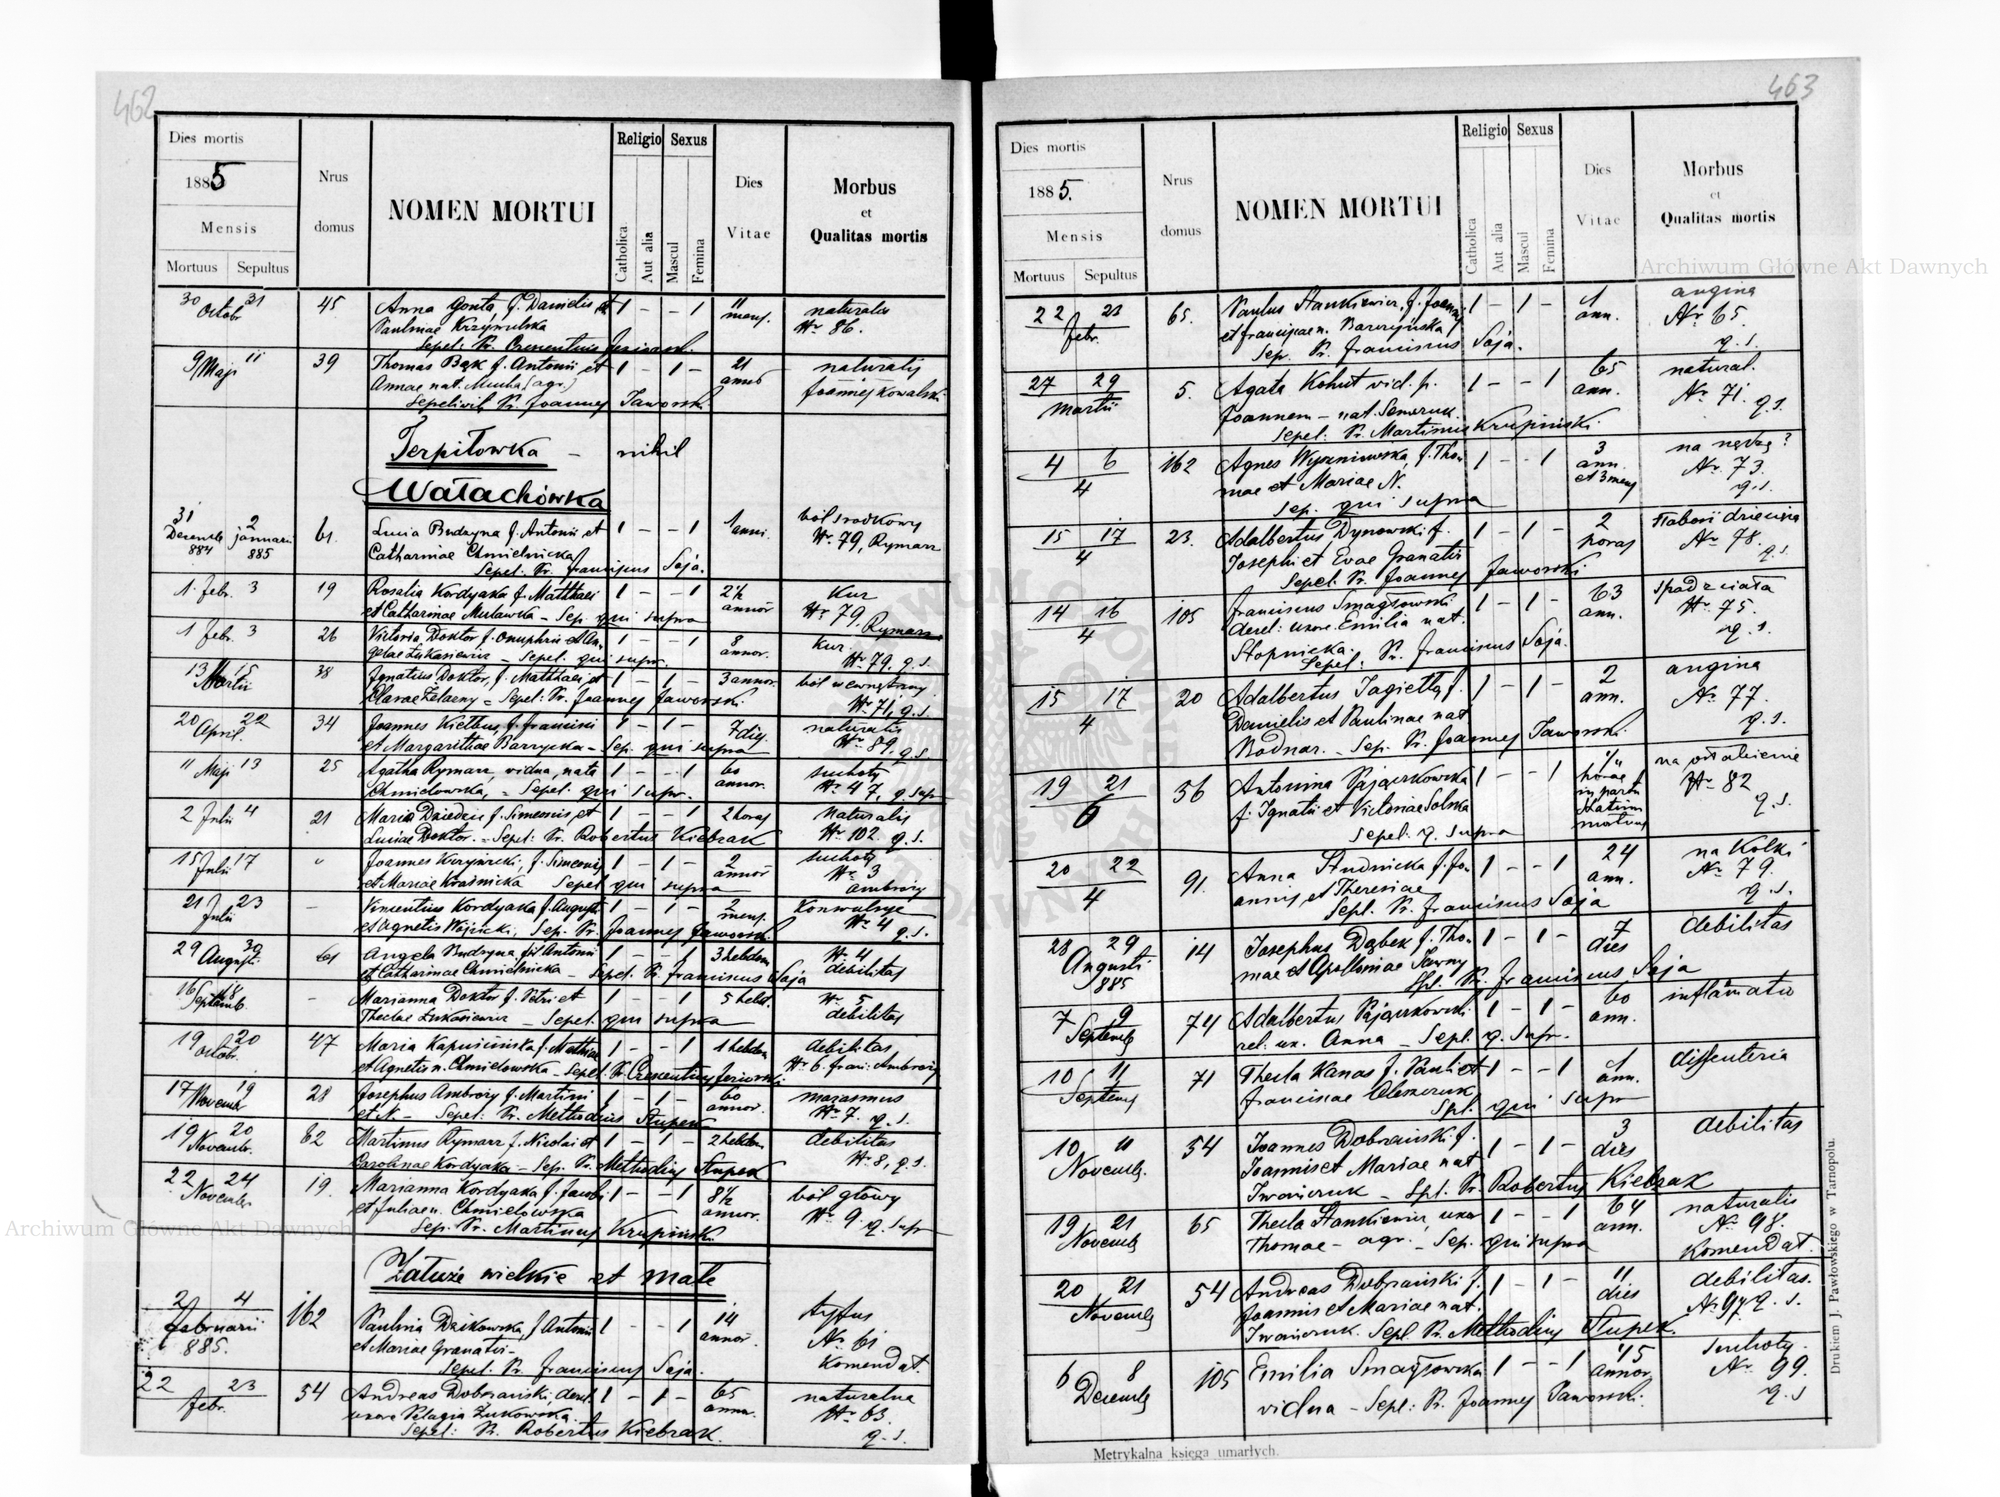 462
Dies mortis
1885
Mensis
Mortuus Sepultus
Nrus
domus
NOMEN MORTUI
Religio
Catholica
Aut alia
Sexus
Mascul
Femina
Dies
Vitae
Morbus
et
Qualitas mortis
30 31 45 Anna Gonta, f. Danielis et 1 - - 1 11 naturalis
Octobr Paulinae Krzywulska mens. Nr 86.
Sepel: Pr. Crescentius
9 Maji 11 39 Thomas Bąk f. Antonii et 1 - 1 - 21 naturalis
Annae nat. Mucha (agr.) annor Joannes Kowalski
Sepelivit Pr. Joannes Jaworski
Terpiłowka - nihil
Wałachówka
31 2 61. Lucia Budzyna f. Antonii et 1 - - 1 1 anni.
Decemb januarii Catharinae Chmielnicka Nr 79, Rymarz
884 885 Sepel. Pr. franciscus Soja.
1. Febr. 3 19 Rosalia Kordyaka f. Matthaei 1 - - 1 2½ Kur
et Catharinae Mulawka - Sep. qui supra annor Nr 79, Rymarz
1 Febr. 3 26 Victoria Doktor f. Onuphrii et An- 1 - - 1 8 kur
gelae Łukasiewicz - Sepel. qui supr. annor. Nr 79. q. s.
13 Martii 15 38 Ignatius Doktor, f. Matthaei et 1 - 1 - 3 annor. ból wewnętrzny
Clarae Żelazny - Sepel: Pr. Joannes Jaworski Nr 71, q. s.
20 22 34 Joannes Kiełbus, f. francisci 1 - 1 - 7 die. naturalis
April. et Margarithae Barzycka - Sep. qui supra Nr 89. q. s.
11 Maji 13 25 Agatha Rymarz, vidua, nata 1 - - 1 60 suchoty
Chmielowska, - Sepel. qui supr. annor. Nr 47, q. supr
2 Julii 4 21 Maria Dziedzic f. Simeonis et 1 - - 1 2 horas naturalis
Luciae Doktor. - Sepel: Pr. Robertus Kiebzak Nr 102. q. s.
15 Julii 17 " Joannes f. Simeonis 1 - 1 - 2 suchoty
et Mariae Kradnicka Sepel qui supra annor Nr 3
ambroży
21 23 - Vincentius Kordyaka f. Augusti 1 - 1 - 2 Konwulsye
Julii et Agnetis Wójcicki, Sep. Pr. Joannes Jaworski mens. Nr 4 q. s.
29 Augusti 30 61 Angela Budzyna fil Antonii 1 - - 1 3 hebdom Nr 4
et Catharinae Chmielnicka - Sepel. Pr. franciscus Soja debilitas
16 18 - Marianna Doktor f. Petri et 1 - - 1 5 hebd. Nr 5
Septemb. Theclae Łukasiewicz - Sepel. qui supra debilitas
19 20 47 Maria Kapuścińska f. Mathiae 1 - - 1 1 hebdom debilitas
Octobr. et Agnetis n. Chmielowska - Sepel. Pr. Crescentius Nr 6. fran: Ambroży
17 19 28 Josephus Ambroży f. Martini 1 - 1 - 60 marasmus
Novemb et N - Sepel: Pr. Methodius Stupek annor. Nr 7. q. s.
19 20 82 Martinus Rymarz f. Nicolai et 1 - 1 - 2 hebdom debilitas
Novembr. Carolinae Kordyaka - Sep. Pr. Methodius Stupek Nr 8, q. s.
22 24 19. Marianna Kordyaka f. Jacobi 1 - - 1 8½ ból głowy
Novembr et Juliae n. Chmielowska annor. Nr 9. q. supr
Sep. Pr. Martinus Krupiński
Załuże wielkie et małe
2 4 162 Paulina Dzikowska, f Antonii 1 - - 1 14 tyfus
februarii et Mariae Granatir - annor. Nr 61
885. Sepel. Pr. franciscus Soja. Komendat.
22 23 54 Andreas Dobrzański, derel. 1 - 1 - 65 naturalna
febr. uxore Pelagia Żukowska. annor. Nr 63.
Sepel: Pr. Robertus Kiebzak. q. s.
463
Dies mortis
1885.
Mensis
Mortuus Sepultus
Nrus
domus
NOMEN MORTUI
Religio
Catholica
Aut alia
Sexus
Mascul
Femina
Dies
Vitae
Morbus
et
Qualitas mortis
22 23 65. Paulus Stankiewicz, f. Joannis 1 - 1 - 1 angina
febr. et franciscae n. Barczyńska ann. Nr 65.
Sep. Pr. franciscus Soja. q. s.
27 29 5. Agata Kohut vid. p. 1 - - 1 65 natural.
Martii Joannem - nat. Semczuk. ann. Nr 71. q. s.
Sepel: Pr. Martinus Krupiński.
4 6 162 Agnes f. Tho- 1 - - 1 3 na nędzę?
4 mae et Mariae N. ann. et 3 mens Nr. 73.
Sep. qui supra q. s.
15 17 23. Adalbertus Dynowski f. 1 - 1 - 2
4 Josephi et Evae Granatir horas Nr 78.
Sepel. Pr. Joannes Jaworski q. s.
14 16 105 franciscus Smagłowski 1 - 1 - 63
4 derel: uxore. Emilia nat. ann. Nr. 75.
Stopnicka. q. s.
Sepel: Pr. Franciscus Soja.
15 17 20 Adalbertus Jagiełła, f. 1 - 1 - 2 angina
4 Danielis et Paulinae nat ann. Nr 77.
Bodnar. - Sep. Pr. Joannes Jaworski q. s.
19 21 56 Antonina Pajączkowska 1 - - 1 ¼ na osłabienie
6 f. Ignatii et Victoriae Solska horae Nr 82
Sepel. q. supra in partu statim mortuus q. s.
20 22 91. Anna Studnicka f. Jo- 1 - - 1 24 na Kolki
4 annis et Theresiae ann. Nr. 79.
Sepl. Pr. Franciscus Soja q. s.
28 29 14 Josephus Dąbek f. Tho- 1 - 1 - 7 debilitas
Augusti mae et Apolloniae dies
885 Spl. Pr. Franciscus Soja
7 9 74 Adalbertus Pajączkowski 1 - 1 - 60 inflamatio
Septemb rel: ux. Anna - Sepl. q. supr. ann.
10 11 71 Thecla Kanas f. Pauli et 1 - - 1 1 dissenteria
Septemb Franciscae Oleszczuk ann.
Spl. qui supr
10 11 54 Joannes Dobrzański f. 1 - 1 - 3 debilitas
Novemb. Joannis et Mariae nat dies
Iwańczuk - Spl. Pr. Robertus Kiebzak
19 21 65 Thecla Stankiewicz, uxor 1 - - 1 64 naturalis
Novemb Thomae - agr. - Sep. qui supra ann. Nr. 98.
Komendat.
20 21 54 Andreas Dobrzański f. 1 - 1 - 11 debilitas.
Novemb Joannis et Mariae nat. dies Nr 97 q. s.
Iwańczuk. Sepl Pr. Methodius Stupek.
6 8 105 Emilia Smagłowska 1 - - 1 45 suchoty.
Decemb vidua - Sepel: Pr. Joannes Jaworski. annor. Nr. 99.
q. s
Metrykalna księga umarłych.
Drukiem J. Pawłowskiego w Tarnopolu.
Archiwum Główne Akt Dawnych
Archiwum Główne Akt Dawnych